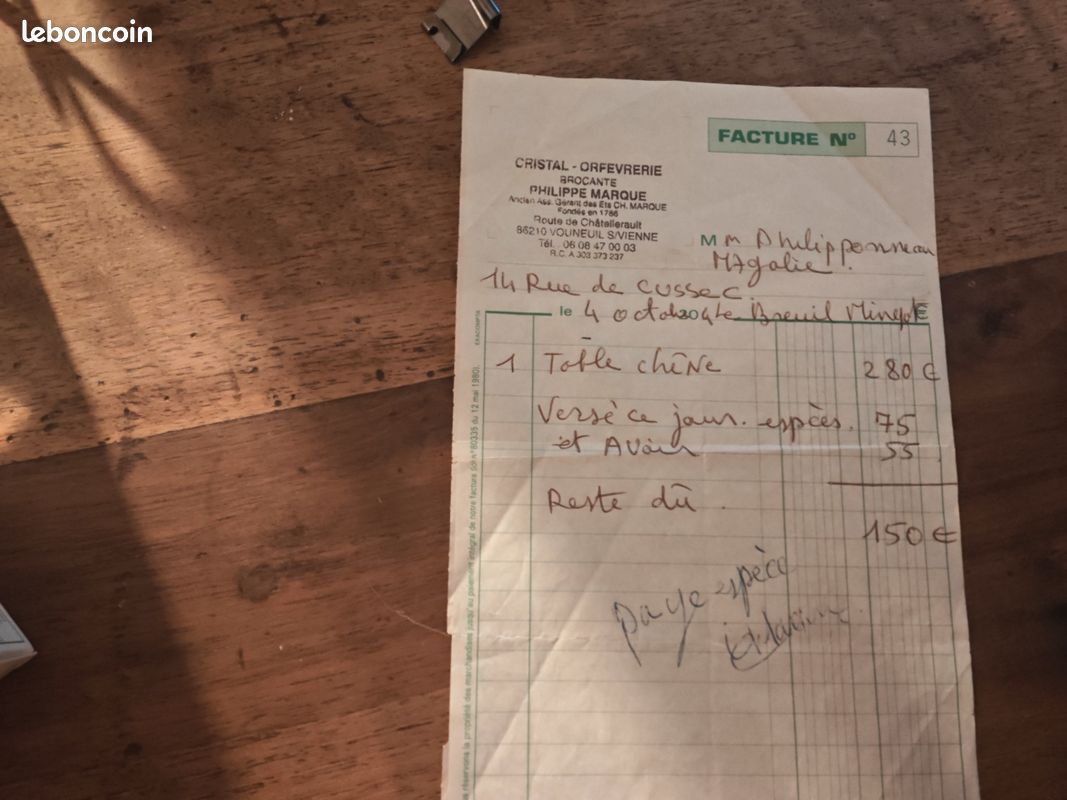 leboncoin
FACTURE Nº 43
CRISTAL - ORFEVRERIE
BROCANTE
PHILIPPE MARQUE
Ancien Ass. Gérant des Ets CH. MARQUE
Fondés en 1786
Route de Châtellerault
86210 VOUNEUIL S/VIENNE
Tél. 06 08 47 00 03
R.C. A 303 373 237
M m Philipponneau
Magalie.
14 Rue de Cussec
le 4 octobre Breuil €
1 Table chêne 280 €
Versé ce jour. espèces. 75
et Avoir 55
Reste dû.
150 €
paye espèce
EXACOMPTA
réservons la propriété des marchandises jusqu'au paiement intégral de notre facture (loi n° 80335 du 12 mai 1980).